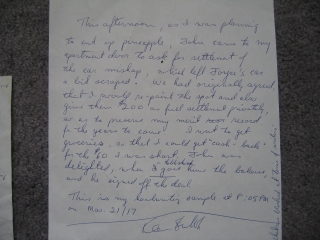 This afternoon, as I was planning
to cut up pineapple, John came to my
apartment door to ask for settlement of
the car mishap, which left Joyce's car
a bit scraped. We had originally agreed
that I would re-paint the spot and also
give them $200 as full settlement privately
so as to preserve my merit record
for the years to come. I went to get
groceries, so that I could get "cash-back"
for the $60 I was short. John was
delighted, when I gave him the balance,
and he signed off the deal.
This is my handwriting sample at 8:05 PM
on Mar. 21/17